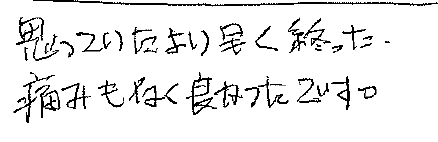 思っていたより早く終った.
痛みもなく良かったです。